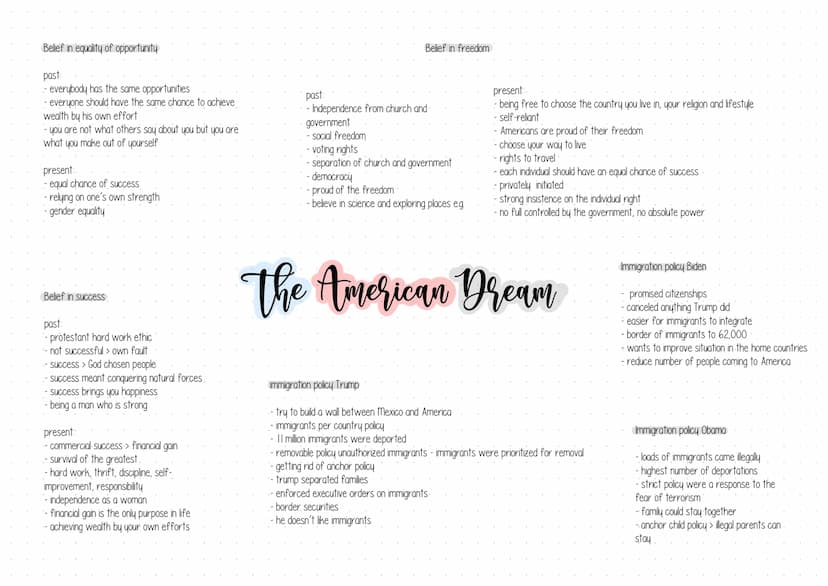 Belief in equality of opportunity
past:
- everybody has the same opportunities
- everyone should have the same chance to achieve
wealth by his own effort
- you are not what others say about you but you are
what you make out of yourself
present:
- equal chance of success
- relying on one's own strength
- gender equality
Belief in freedom
past:
- Independence from church and
government
- social freedom
- voting rights
- separation of church and government
- democracy
- proud of the freedom
- believe in science and exploring places e.g.
present:
- being free to choose the country you live in, your religion and lifestyle
- self-reliant
- Americans are proud of their freedom
- choose your way to live
- rights to travel
- each individual should have an equal chance of success
- privately initiated
- strong insistence on the individual right
- no full controlled by the government, no absolute power
The American Dream
Belief in success
past:
- protestant hard work ethic
- not successful > own fault
- success > God chosen people
- success meant conquering natural forces
- success brings you happiness
- being a man who is strong
present:
- commercial success > financial gain
- survival of the greatest
- hard work, thrift, discipline, self-
improvement, responsibility
- independence as a woman
- financial gain is the only purpose in life
- achieving wealth by your own efforts
immigration policy Trump
- try to build a wall between Mexico and America
- immigrants per country policy
- 11 million immigrants were deported
- removable policy unauthorized immigrants - immigrants were prioritized for removal
- getting rid of anchor policy
- trump separated families
- enforced executive orders on immigrants
- border securities
- he doesn't like immigrants
Immigration policy Biden
- promised citizenships
- canceled anything Trump did
- easier for immigrants to integrate
- border of immigrants to 62,000
- wants to improve situation in the home countries
- reduce number of people coming to America
Immigration policy Obama
- loads of immigrants came illegally
- highest number of deportations
- strict policy were a response to the
fear of terrorism
- family could stay together
- anchor child policy > illegal parents can
stay